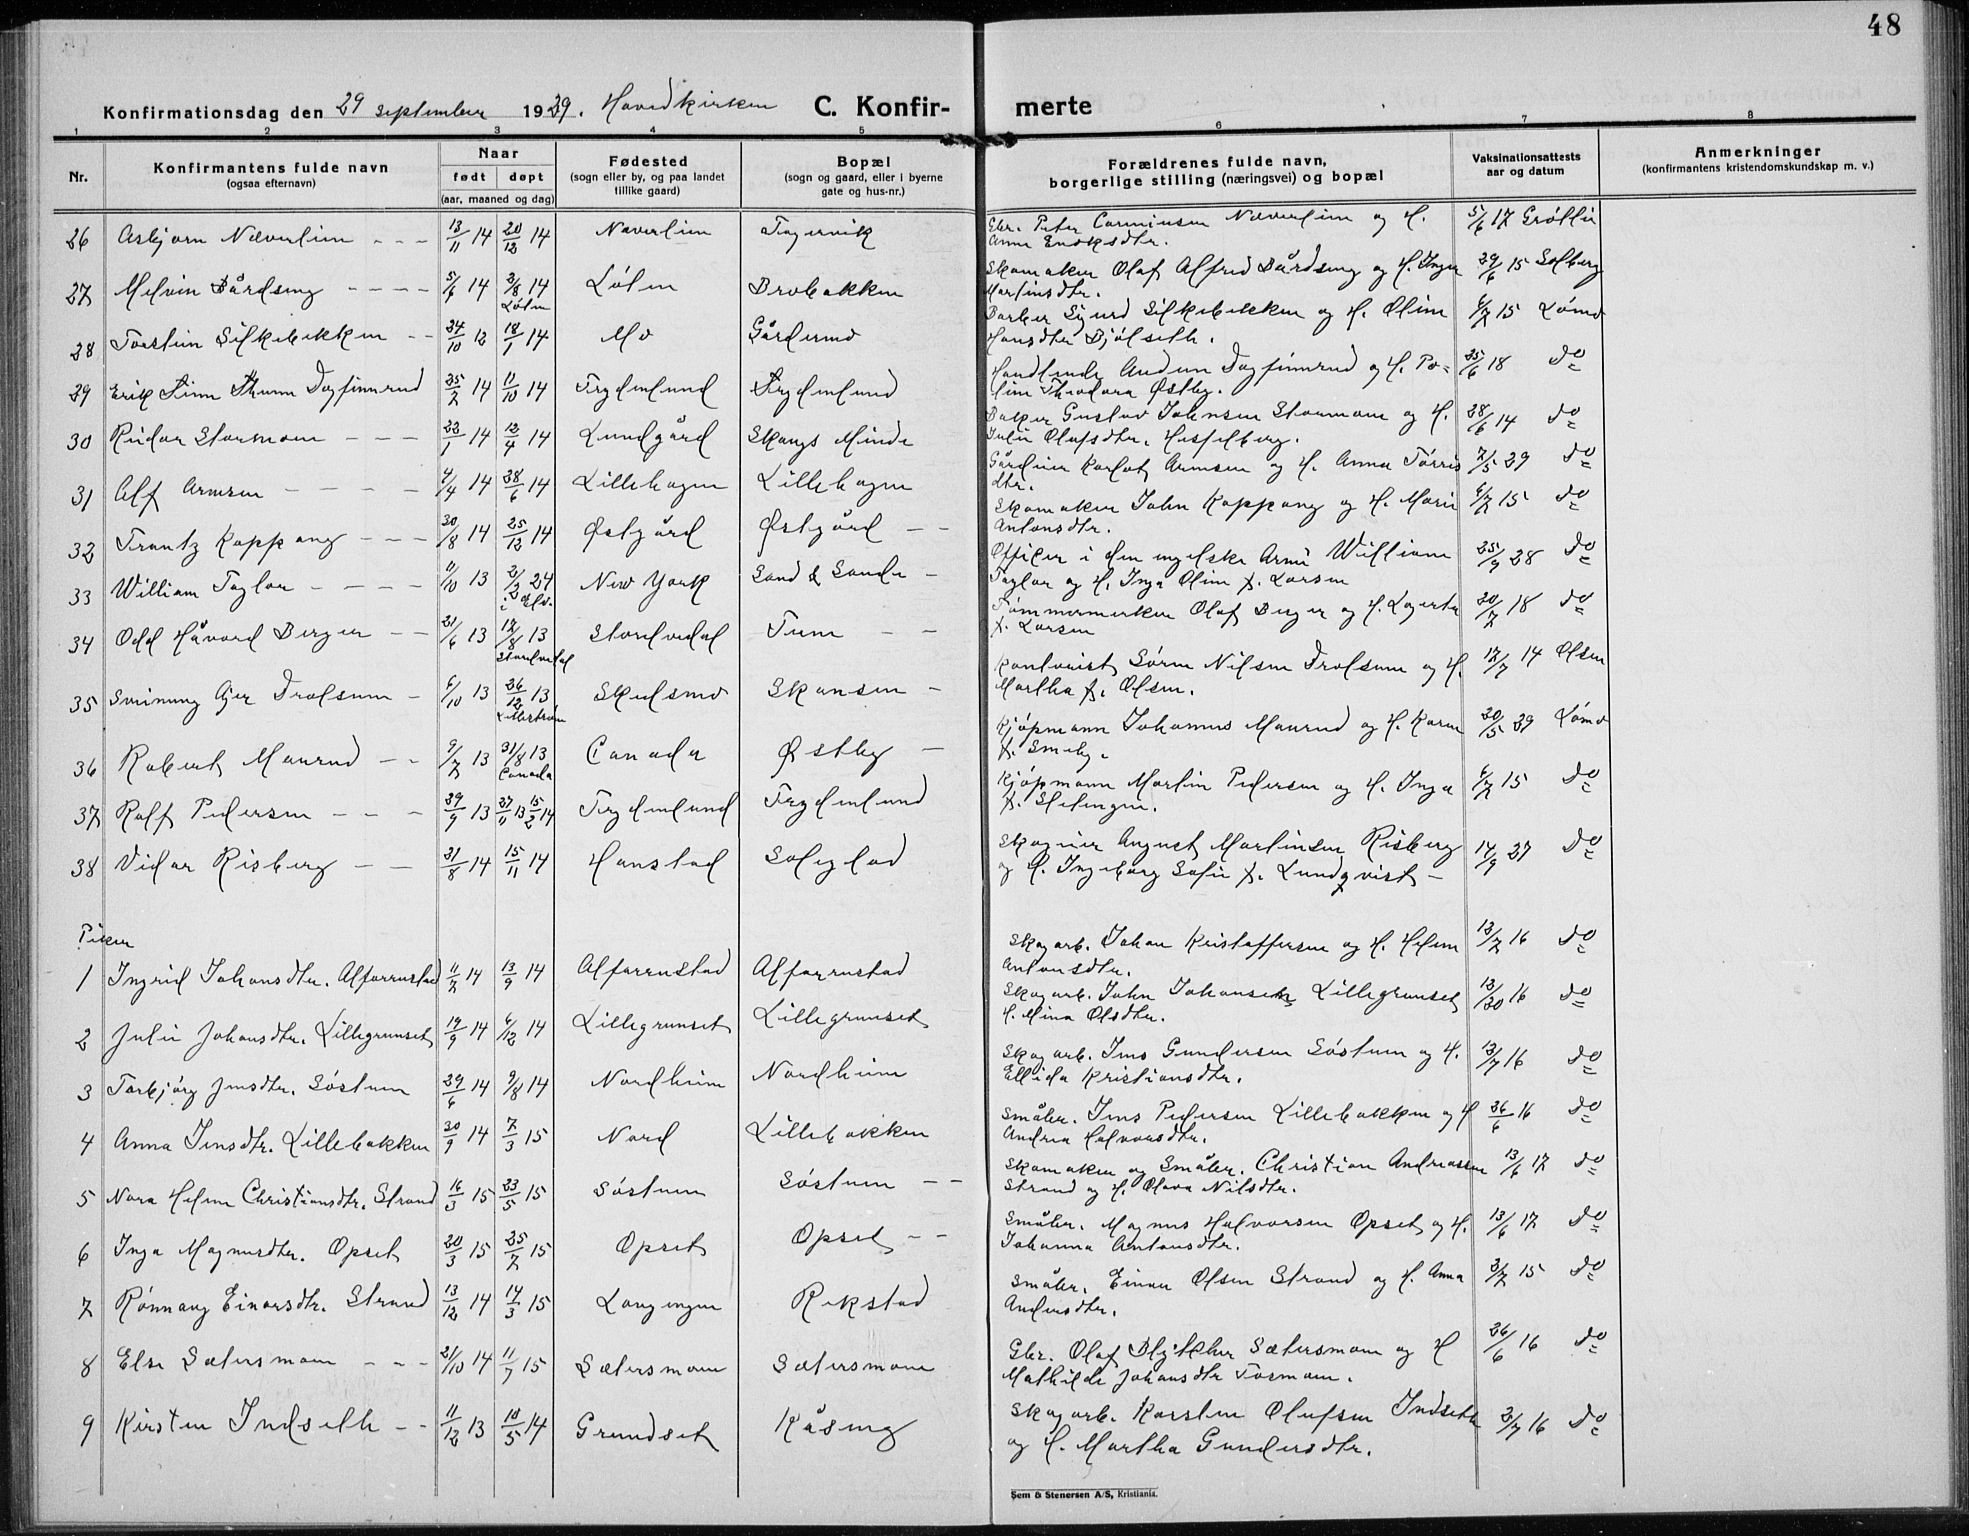 48
Konfirmationsdag den 29 september 1929. Hovedkirken C. Konfir- merte
1 2 3 4 5 6 7 8
Nr.
Konfirmantens fulde navn
(ogsaa efternavn)
Naar
født døpt
(aar, maaned og dag)
Fødested
(sogn eller by, og paa landet
tillike gaard)
Bopæl
(sogn og gaard, eller i byerne
gate og hus-nr.)
Forældrenes fulde navn,
borgerlige stilling (næringsvei) og bopæl
Vaksinationsattests
aar og datum
Anmerkninger
(konfirmantens kristendomskundskap m. v.)
26 Asbjørn Næverlien - - - 13/11 14 20/12 14 Næverlien Fagervik Gbr. Peter Næverlien og H. 5/6 17
Anne Enoksdtr.
27 Melvin Bårdseng - - - - 5/6 14 2/8 14 Løten Brobakken Skomaker Olaf Alfred Bårdseng og H. Inga 29/6 15 Solberg
Løten
Martinsdtr.
28 Torstein Silkebekken - - 24/10 12 18/1 14 Mo Gårdermo Barber Sigurd Silkebekken og H. Oline 6/7 15 Lømo
Hansdtr Bjølseth.
29 Erik Finn Thune Dagfinrud 25/7 14 11/10 14 Frydenlund Frydenlund Handlende Audun Dagfinrud og H. Po- 25/6 18 do
line Theodora Østby.
30 Reidar Stormoen - - - 22/1 14 12/4 14 Lundgård Skougs Minde Baker Gustav Johnsen Stormoen og H. 28/6 14 do
Julie Olafsdtr. Hesselberg.
31 Alf Arnesen - - - - 4/4 14 28/6 14 Lillehagen Lillehagen Gårdeier Karlof Arnesen og H. Anna Tørris 7/5 29 do
dtr.
32 Frantz Koppang - - - 20/8 14 25/12 14 Østgård Østgård - - Skomaker John Koppang og H. Marie 6/7 15 do
Antonsdtr.
33 William Taylor - - - - 11/10 13 2/3 24 New York Sand & Sande - Officer i den engelske Armé William 25/9 28 do
i Elv.
Taylor og H. Inga Oline f. Larsen
34 Odd Håvard Berger - - 21/6 13 17/8 13 Storelvdal Tune - - Tømmermerker Olaf Berger og H. Lagerta 20/7 18 do
Storelvdal
f. Larsen
35 Sveinung Gjer Trolsum - 6/10 13 26/12 13 Skedsmo Skansen - Kontorist Søren Nilsen Trolsum og H. 17/7 14 Olsen
Lillestrøm
Martha f. Olsen.
36 Robert Maurud - - 9/7 13 31/8 13 Canada Østby - Kjøpmann Johannes Maurud og H. Karen 20/5 29 Lømo
Canada
f. Smeby.
37 Rolf Pedersen - - - 29/9 13 27/11 13 15/2 14 Frydenlund Frydenlund Kjøpmann Martin Pedersen og H. Inga 6/7 15 do
f. Stelengen.
38 Vidar Risberg - - 31/8 14 15/11 14 Hanstad Soleglad Skogeier August Martinsen Risberg 14/9 27 do
og H. Ingeborg Sofie f. Lundqvist -
Piker
1 Ingrid Johansdtr. Alfarrustad 11/7 14 13/9 14 Alfarrustad Alfarrustad Skogarb. Johan Kristoffersen og H. Helene 13/7 16 do
Antonsdtr.
2 Julie Johansdtr. Lillegrunset 19/9 14 6/12 14 Lillegrunset Lillegrunset Skogarb. John Johansen Lillegrunset 13/20 16 do
H. Mina Olsdtr.
3 Torbjørg Jensdtr. Søstuen 29/6 14 9/8 14 Nordheim Nordheim Skogarb. Jens Gundersen Søstuen og H. 13/7 16 do
Ellida Kristiansdtr.
4 Anna Jensdtr. Lillebakken 30/9 14 7/3 15 Nord Lillebakken Småbr. Jens Pedersen Lillebakken og H 26/6 16 do
Andrea Halvorsdtr.
5 Nora Helene Christiansdtr. Strand 16/3 15 23/5 15 Søstuen Søstuen - - Skomaker og Småbr. Christian Andreassen 13/6 17 do
Strand og H. Olava Nilsdtr.
6 Inga Magnusdtr. Opset 20/3 15 25/7 15 Opset Opset - - Småbr. Magnus Halvorsen Opset og H. 13/6 17 do
Johanna Antonsdtr.
7 Rønnaug Einarsdtr. Strand 13/12 14 14/3 15 Langengen Rekstad Småbr. Einar Olsen Strand og H. Anna 3/7 15 do
Andersdtr.
8 Else Sætersmoen - - - 21/10 14 11/7 15 Sætersmoen Sætersmoen Gbr. Olaf Sætersmoen og H 26/6 16 do
Mathilde Johansdtr Formoen.
9 Kirsten Indseth - - 11/12 13 18/5 14 Grundset Kåseng Skogarb. Karsten Olufsen Indseth 3/7 16 do
og H. Martha Gundersdtr.
Sem & Stenersen A/S, Kristiania.